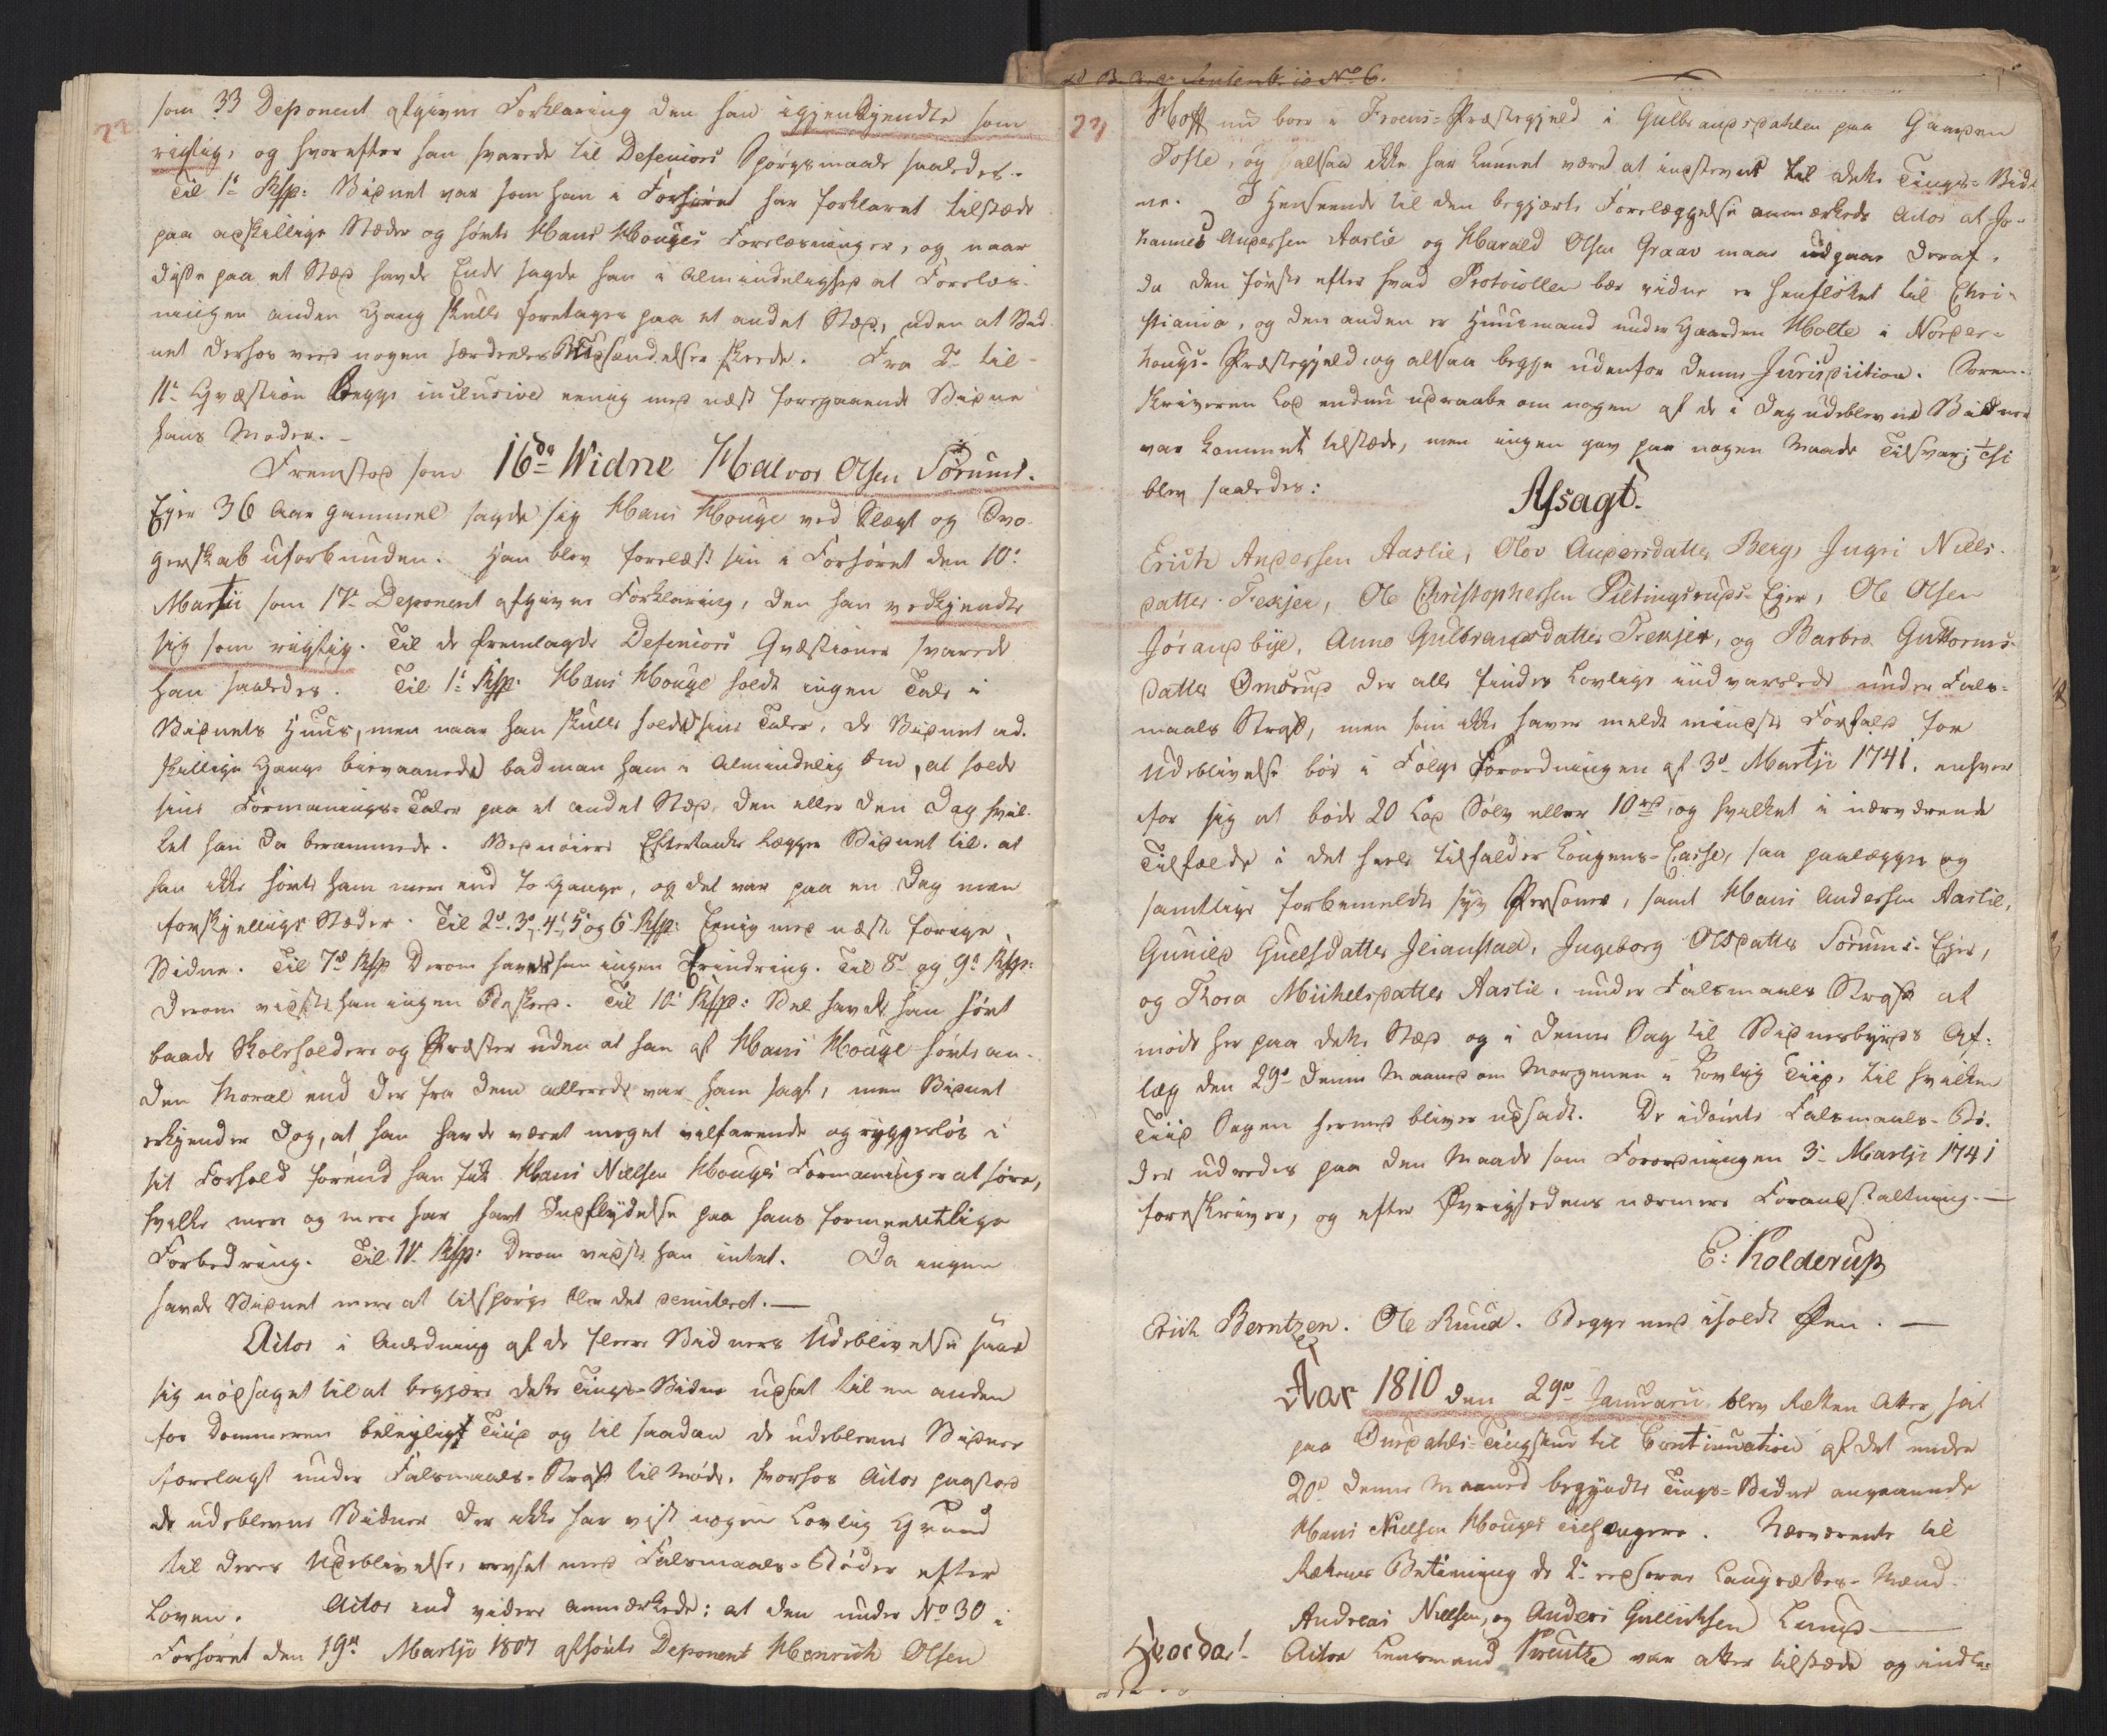 som 33 Deponent afgivne Forklaring den han igjenkjendte som
rigtig, og hvorefter han svarede til Defensors Spørgsmaale saaledes.
Til 1ste Rsp: Vidnet var som han i Forhøret har forklaret tilstæde
paa adskillige Stæder og hørte Hans Houges Forelæsninger, og naar
disse paa et Stæd havde Ende sagde han i Almindelighed at Forelæs-
ningen anden Gang skulle foretages paa et andet Stæd, uden at Vid-
net derhos veed nogen særdeles Budsendelser skeede. Fra 2den til
11te Qvæstion begge inclusive eenig med næst foregaaende Vidne
hans Moder. -
Fremstod som 16de Widne Halvor Olsen Sørums-
Ejer 36 Aar gammel sagde sig Hans Houge ved Slægt og Svo-
gerskab uforbunden. Han blev forelæst sin i Forhøret den 10de
Martii som 17de Deponent afgivne Forklaring, den han vedkjendte
sig som rigtig. Til de fremlagde Defensors Qvæstioner svarede
han saaledes. Til 1ste Rsp: Hans Houge holdt ingen Tale i
Vidnets Huus, men naar han skulle holde sine Taler, de Vidnet ad-
skillige Gange bievaanede, bad man ham i Almindelig om, at holde
sine Formanings-Taler paa et andet Stæd, den eller den Dag hvil-
ket han da berammede. Ved nøiere Eftertanke lægger Vidnet til, at
han ikke hørte ham mere end to Gange, og det var paa en Dag men
forskjellige Stæder. Til 2den 3die 4de 5te og 6te Rsp: Eenig med næste forrige
Vidne. Til 7de Rsp Derom havde han ingen Erindring. Til 8de og 9de Rsp:
derom vidste han ingen Beskeed. Til 10de Rsp: Vel havde han hørt
baade Skoleholdere og Præster uden at han af Hans Houge hørte an-
den Moral end der fra dem allerede var ham sagt, men Vidnet
erkjender dog, at han havde været meget vilfarende og ryggesløs i
sit Forhold førend han fik Hans Nielsen Houges Formaninger at høre,
hvilke mere og mere har havt Indflydelse paa hans formeentlige
Forbedring. Til 11te Rsp: Derom vidste han intet. Da ingen
havde Vidnet mere at tilspørge blev det demitteret. -
Actor i Anledning af de fleere Vidners Udeblivelse saae
sig nødsaget til at begjære dette Tings-Vidne udsat til en anden
for Dommeren beleyligt Tiid og til saadan de udeblevne Vidner
forelagt under Falsmaals-Straf til Møde, hvorhos Actor paastod
de udeblevne Vidner der ikke har vist nogen Lovlig Grund
til deres Udeblivelse, anset med Falsmaals-Bøder efter
Loven. Actor end videre anmærkede: at den under No 30 i
Forhøret den 19de Martii 1807 afhørte Deponent Henrich Olsen
Hoff nu boer i Froens-Præstegjeld i Gulbrandsdahlen paa Gaarden
Tofte, og altsaa ikke har kunnet været at indstevne til dette Tings-Vid-
ne. I Henseende til den begjærte Forelæggelse anmærkede Actor at Jo-
hannes Andersen Aaslie og Harald Olsen Graav maae udgaae deraf,
da den første efter hvad Protocollen bær vidne er henfløttet til Chri-
stiania, og den anden er Huusmand under Gaarden Holte i Norder-
hougs-Præstegjeld og altsaa begge udenfor denne Jurisdiction. Soren-
skriveren lod endnu udraabe om nogen af de i Dag udeblevne Vidner
var kommet tilstæde, men ingen gav paa nogen Maade Tilsvar; Thi
blev saaledes:
Afsagt.
Erich Andersen Aaslie, Olov Andersdatter Berg, Ingri Niels-
datter Frekjer, Ole Christophersen Piltingsruds-Ejer, Ole Olsen
Jørandbye, Anne Gulbrandsdatter Frekjer, og Barbro Guttorms-
datter Omsrud der alle findes Lovlige indvarslede under Fals-
maals Straf, men som ikke haver meldt mindste Forfald for
Udeblivelse bør i Følge Forordningen af 3die Martji 1741, enhver
for sig at bøde 20 Lod Sølv eller 10 rd, og hvilket i nærværende
Tilfælde i det heele tilfalder Kongens-Casse, saa paalægges og
samtlige forbemeldte syv Personer, samt Hans Andersen Aaslie,
Gunild Guelsdatter Jeianstad, Ingeborg Olsdatter Sørums-Ejer,
og Thora Michelsdatter Aaslie, under Falsmaals Straf at
møde her paa dette Stæd og i denne Sag til Vidnesbyrds Af-
læg den 29de denne Maaned om Morgenen i Lovlig Tiid, til hvilken
Tiid Sagen hermed bliver udsadt. De idømte Falsmaals-Bø-
der udredes paa den Maade som Forordningen 3die Martji 1741
foreskriver, og efter Øvrighedens nærmere Foranstaltning. -
E: Kolderup
Erich Berntzen. Ole Ruud. Begge med iholdt Pen. -
Aar 1810 den 29de Januarii, blev Retten atter sat
paa Onsdahls-Tingstue til Continuation af det under
20de denne Maaned begyndte Tings-Vidne angaaende
Hans Nielsen Houges Tilhængere. Nærværende til
Rettens Betiening de 2de eedsorne Laugrettes-Mænd
Andreas Nielsen, og Anders Gullichsen Lund -
Hvorda! Actor Lensmand Kreutze var atter tilstæde og indle-